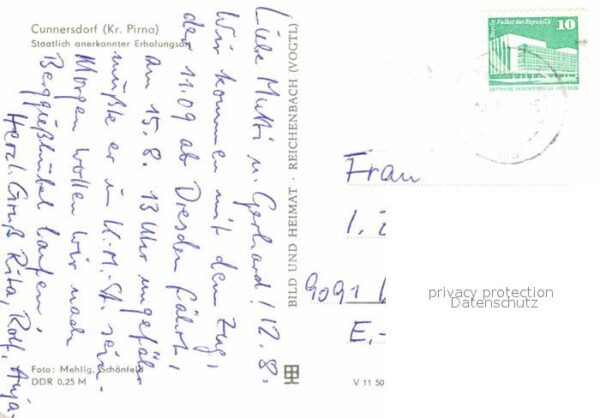 Cunnersdorf (Kr. Pirna)
Staatlich anerkannter Erholungsort
Liebe Mutti u. Gerhard! 12.8.
Wir kommen mit dem Zug,
der 11.09 ab Dresden fährt,
am 15.8. 13 Uhr ungefähr
müßte er in K.M.St. sein.
Morgen wollen wir nach
Berggießhübel laufen.
Herzl. Gruß Rita, Rolf, Anja
Foto: Mehlig, Schönfeld
DDR 0,25 M
BILD UND HEIMAT · REICHENBACH (VOGTL)
V 11 50
Berlin, Palast der Republik
10
DEUTSCHE DEMOKRATISCHE REPUBLIK
Frau
9091
E.-
privacy protection
Datenschutz